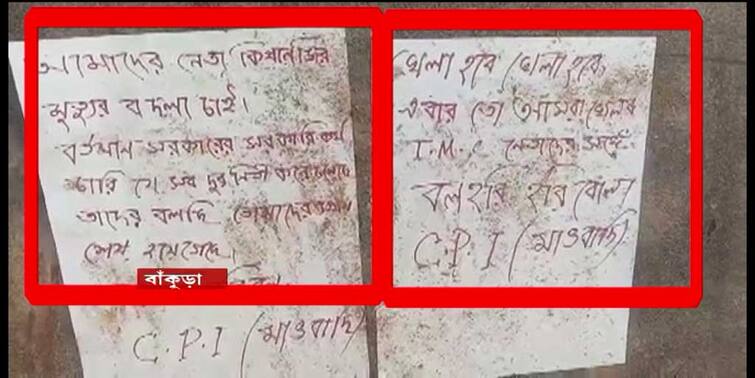 আমাদের নেতা কিষানজির
মৃত্যুর বদলা চাই।
বর্তমান সরকারের সরকারি কর্ম
চারি যে সব দুর্নিতী করে চলেছে
তাদের বলছি তোমাদের
শেষ হয়ে গেছে।
বাঁকুড়া
C.P.I (মাওবাদি)
খেলা হবে খেলা হবে
এবার তো আমরা খেলব
T.M.C নেতাদের সঙ্গে
বলহরি হরি বোল
C.P.I (মাওবাদি)